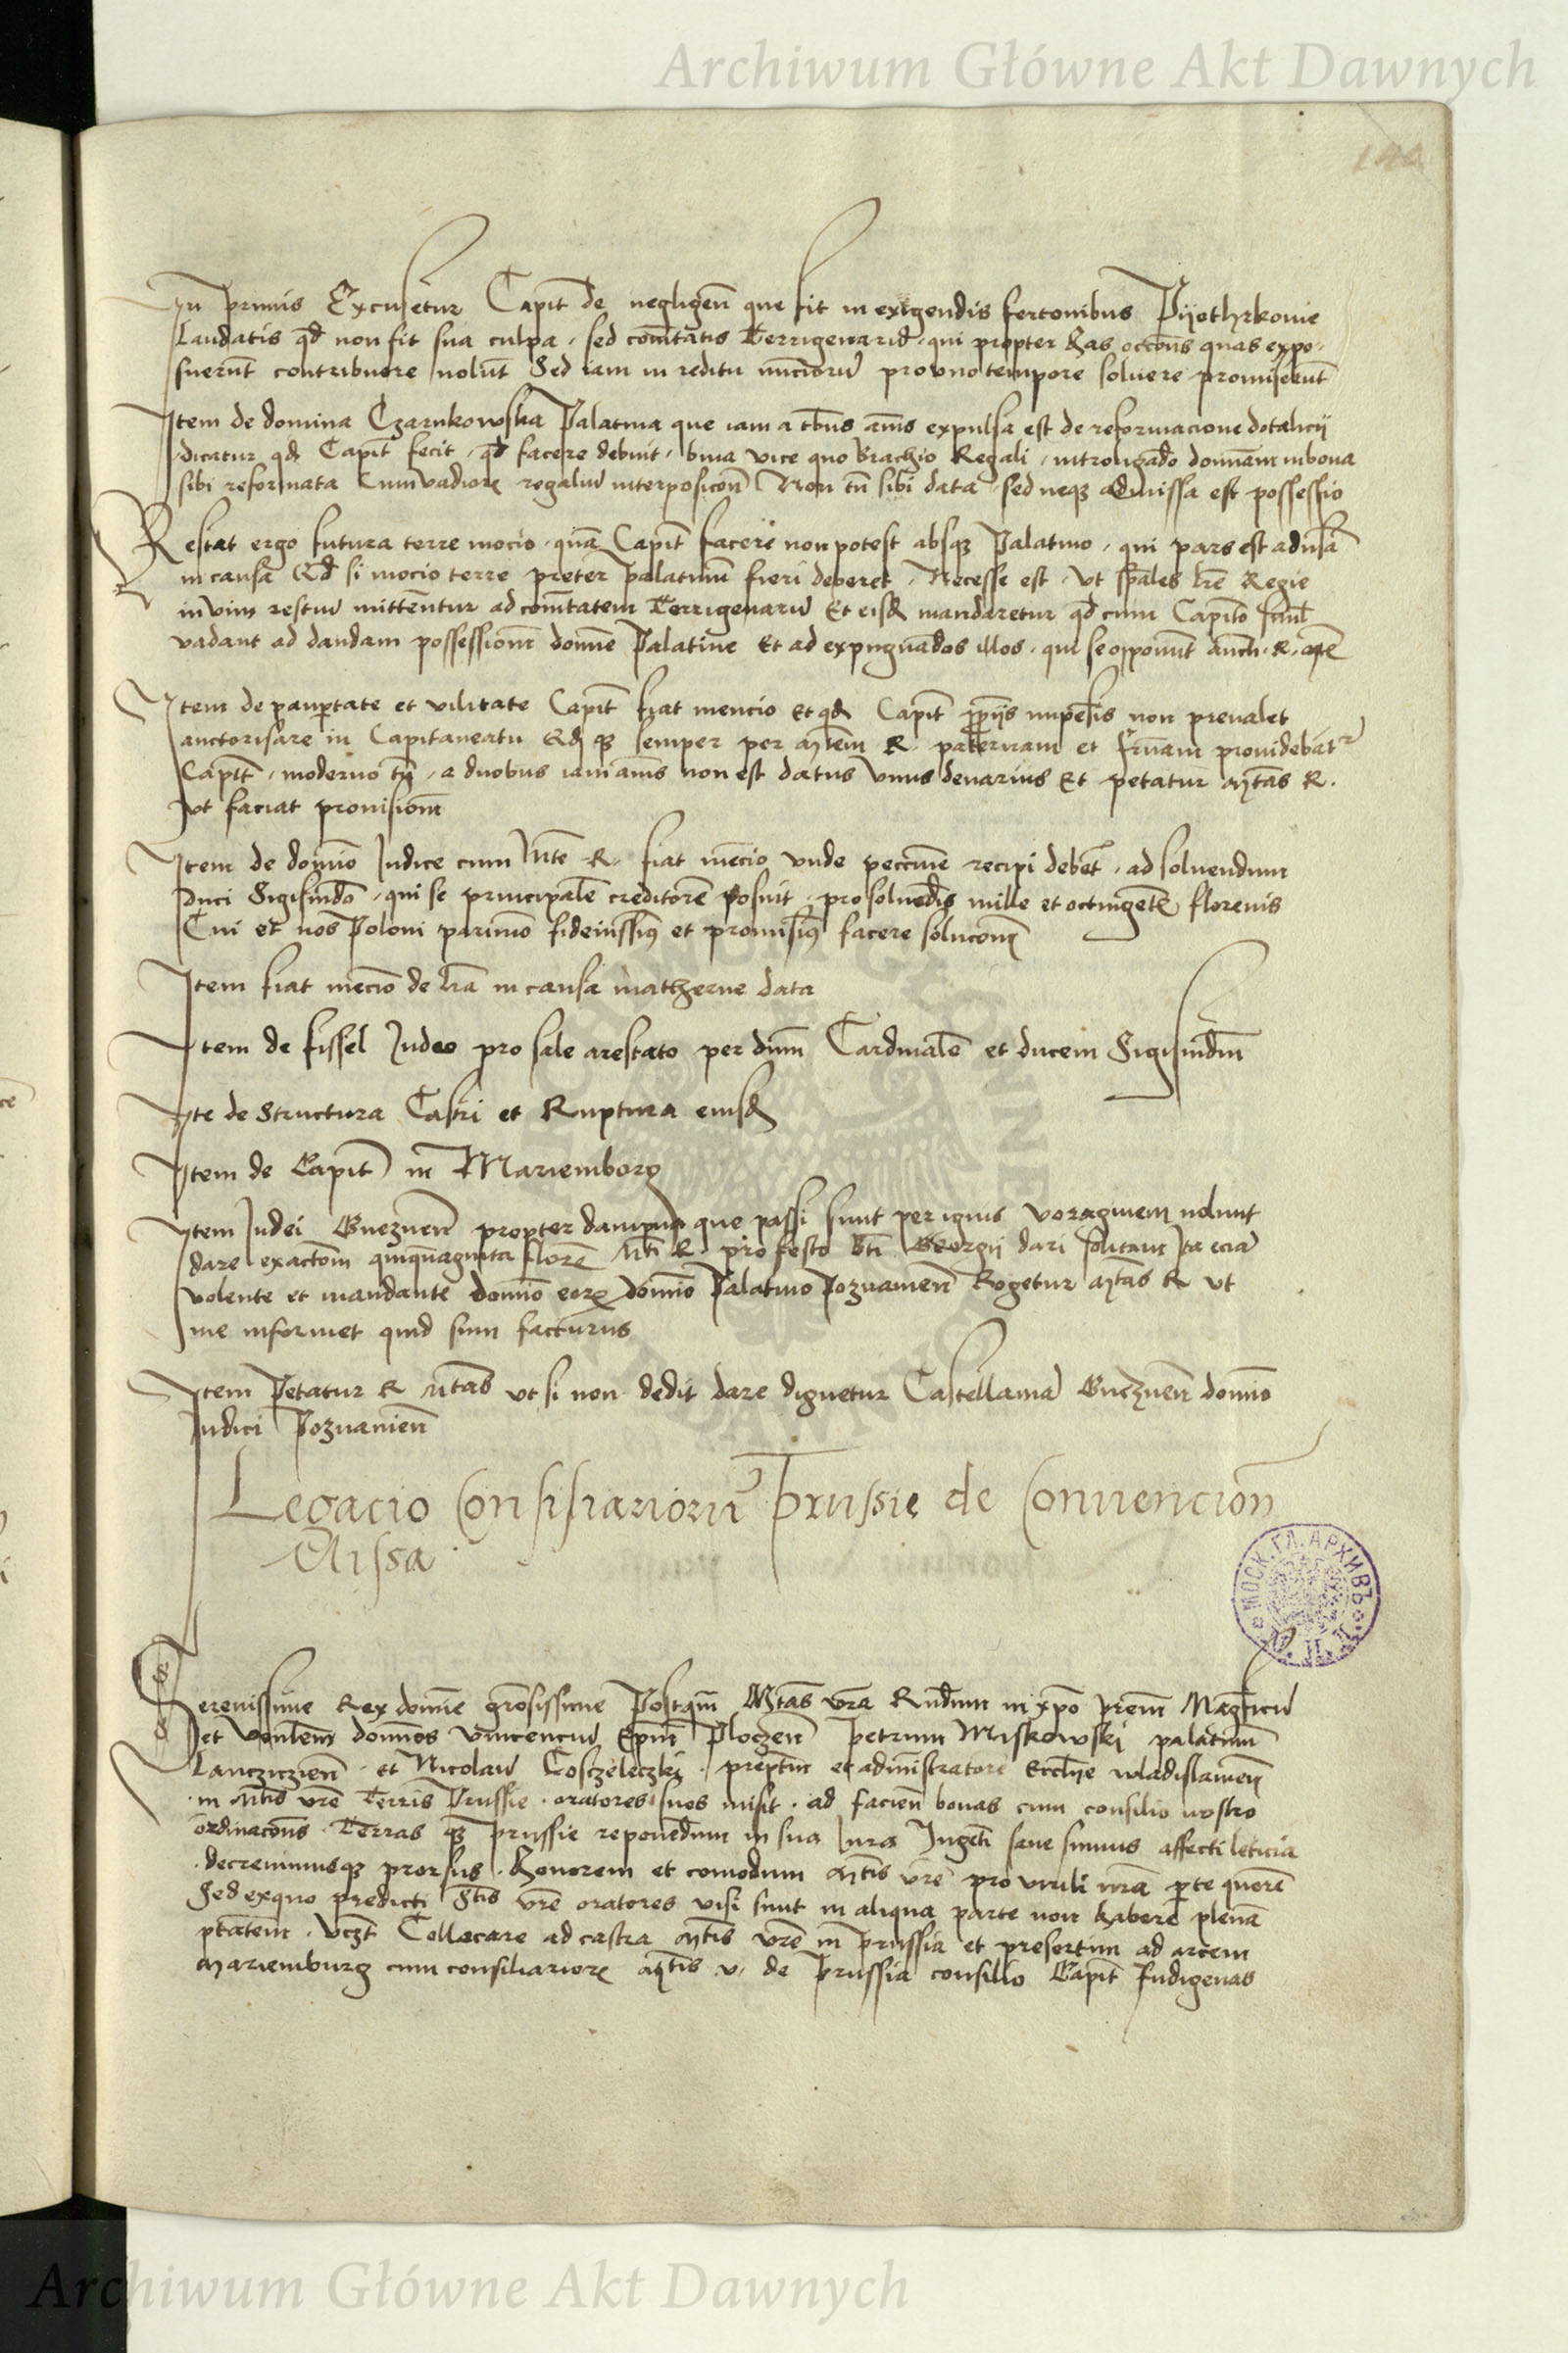 Archiwum Główne Akt Dawnych
In primis Excusetur Capit de negligen que fit in exigendis fertonibus Pyothrkouie
Laudatis qd non fit sua culpa, sed comtatis Terrigenarum qui propter has occons quas expo-
suerunt contribuere nolunt Sed iam in reditu nuncioru pro uno tempore soluere promiserunt
Item de domina Czarnkowska Palatina que iam a tbus annis expulsa est de reformacione dotalicij
dicatur qd Capit fecit, qd facere debuit, bina vice quo brachio Regali, introligado domnam in bona
sibi reformata Cum vadiorz regaliu interposicon Non tn sibi data, sed neqz admissa est possessio
Restat ergo futura terre mocio, qua Capit facere non potest absqz Palatino, qui pars est adusa
in causa Et si mocio terre preter palatinu fieri deberet, Necesse est, ut spales lre Regie
in vim restiu mittentur ad comtatem Terrigenaru Et eisd mandaretur qd cum Capito simul
vadant ad dandam possessionem domne Palatine Et ad expugnados illos, qui se opponunt
Item de paupertate et vilitate Capit fiat mencio Et qd Capit proprijs impesis non preualet
auctorisare in Capitaneatu Et semper per Mtem R. paternam et frnam prouidebatr
Capit, moderno tn, a duobus iam annis non est datus vnus denarius Et petatur Mtas R.
vt faciat prouisionem
Item de domino Iudice cum Mte R. fiat mecio vnde peccunie recipi debet, ad soluendum
Duci Sigismdo, qui se principale creditore posuit, pro soluedis mille et octingetis florenis
Cui et nos Poloni parimo fideiussimus et promisimus facere solucom
Item fiat mecio de lra in causa matherne data
Item de fissel Iudeo pro sale arestato per dnm Cardinale et ducem Sigismdm
Ite de Structura Castri et Ruptura eiusd
Item de Capit in Mariemborg
Item Iudei Gneznen propter dampna que passi sunt per ignis voraginem nolunt
dare exactom quinquaginta floren Mti R. pro festo bti Georgij dari solitam Ita ecia
volente et mandante domino eorz domino Palatino Poznanien Rogetur Mtas R vt
me informet quid sim facturus
Item Petatur R Mtas vt si non dedit dare dignetur Castellania Gneznen domino
Iudici Poznanien
Legacio Consiliarioru Prussie de Conuencion
Missa
Serenissime Rex domine grosissime Postqm Mtas vra Rndum in xpo prem Magficu
et venlem domnos Vincenciu Epm Ploczen Petrum Miskowski palatinu
Lancziczien et Nicolau Cosczeleczky, prepositum et administratore Ecclie wladislauien
in Mtis vre Terris Prussie oratores suos misit, ad facien bonas cum consilio nostro
ordinacons Terras qz Prussie reponedum in sua Iura Ingeti sane sumus affecti leticia
decreuimusqz prorsus, honorem et comodum Mtis vre pro virili nra parte querere
Sed ex quo predicti Stis vre oratores visi sunt in aliqua parte non habere plena
ptatem, vczt Collocare ad castra Mtis vre in prussia et presertim ad arcem
Mariemburg cum consiliariorz Mtis v. de prussia consilio Capit Indigenas
МОСК. ГЛ. АРХИВЪ
Archiwum Główne Akt Dawnych